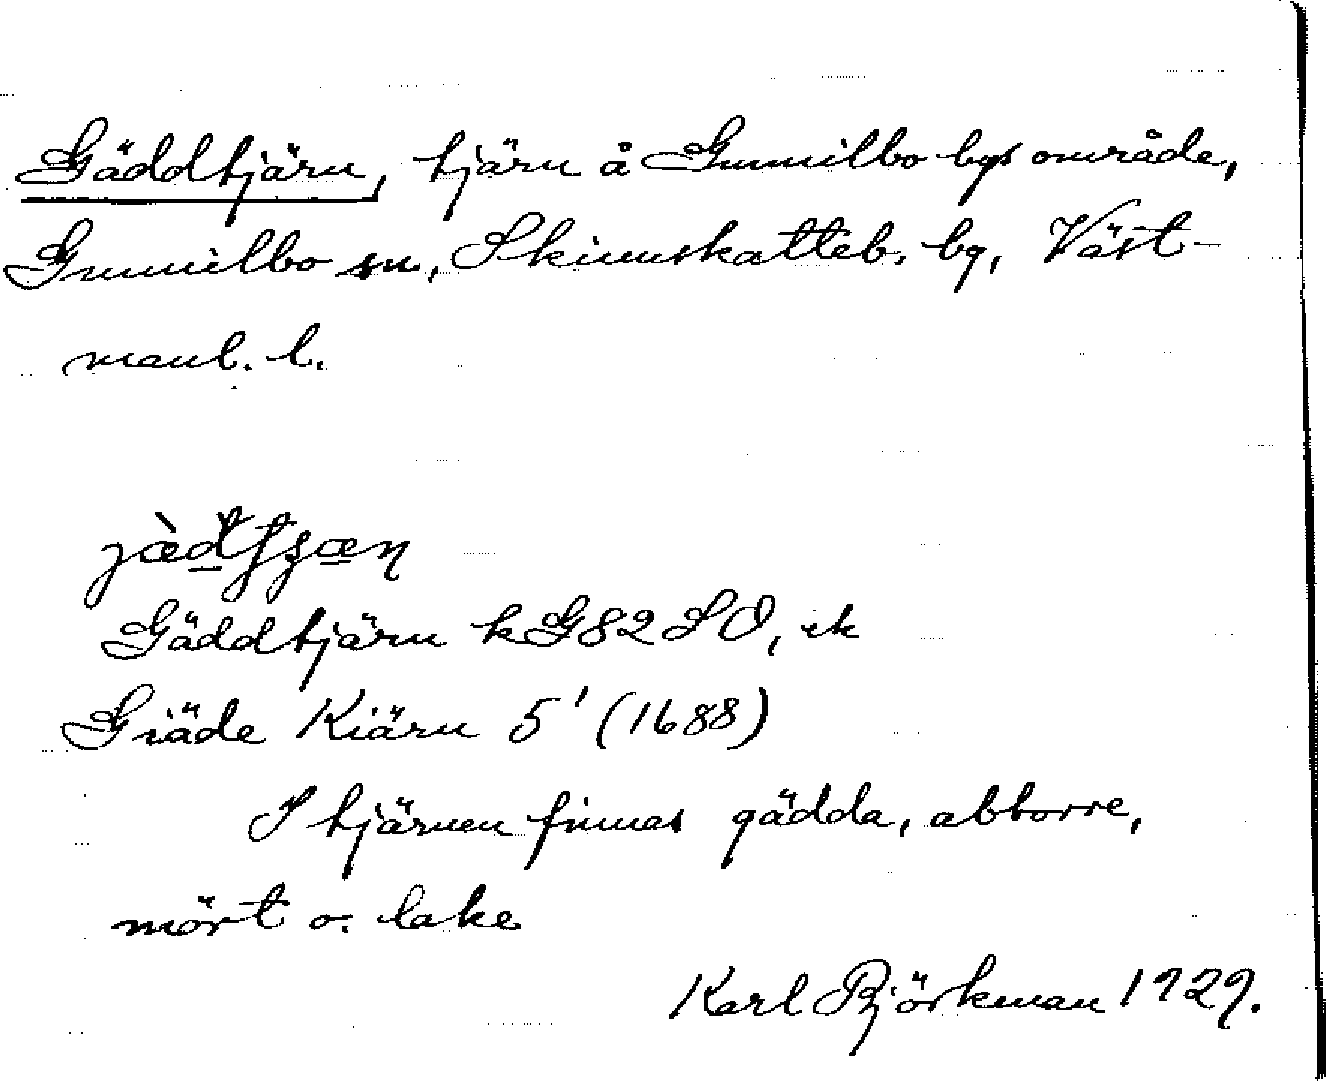 Gäddtjärn, tjärn å Gunnilbo bys område,
Gunnilbo sn, Skinnskatteb. bg, Väst-
manl. l.
Gäddtjärn kG82SO, ek
Giäde Kiärn 5' (1688)
I tjärnen finnas gädda, abborre,
mört o. lake
Karl Björkman 1929.